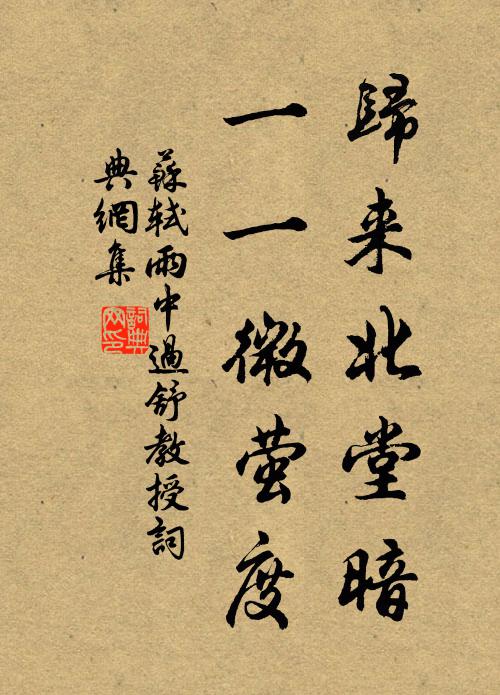 歸来北堂暗
一一微萤度
蘇軾雨中過舒教授詞
典網集
詞典网印